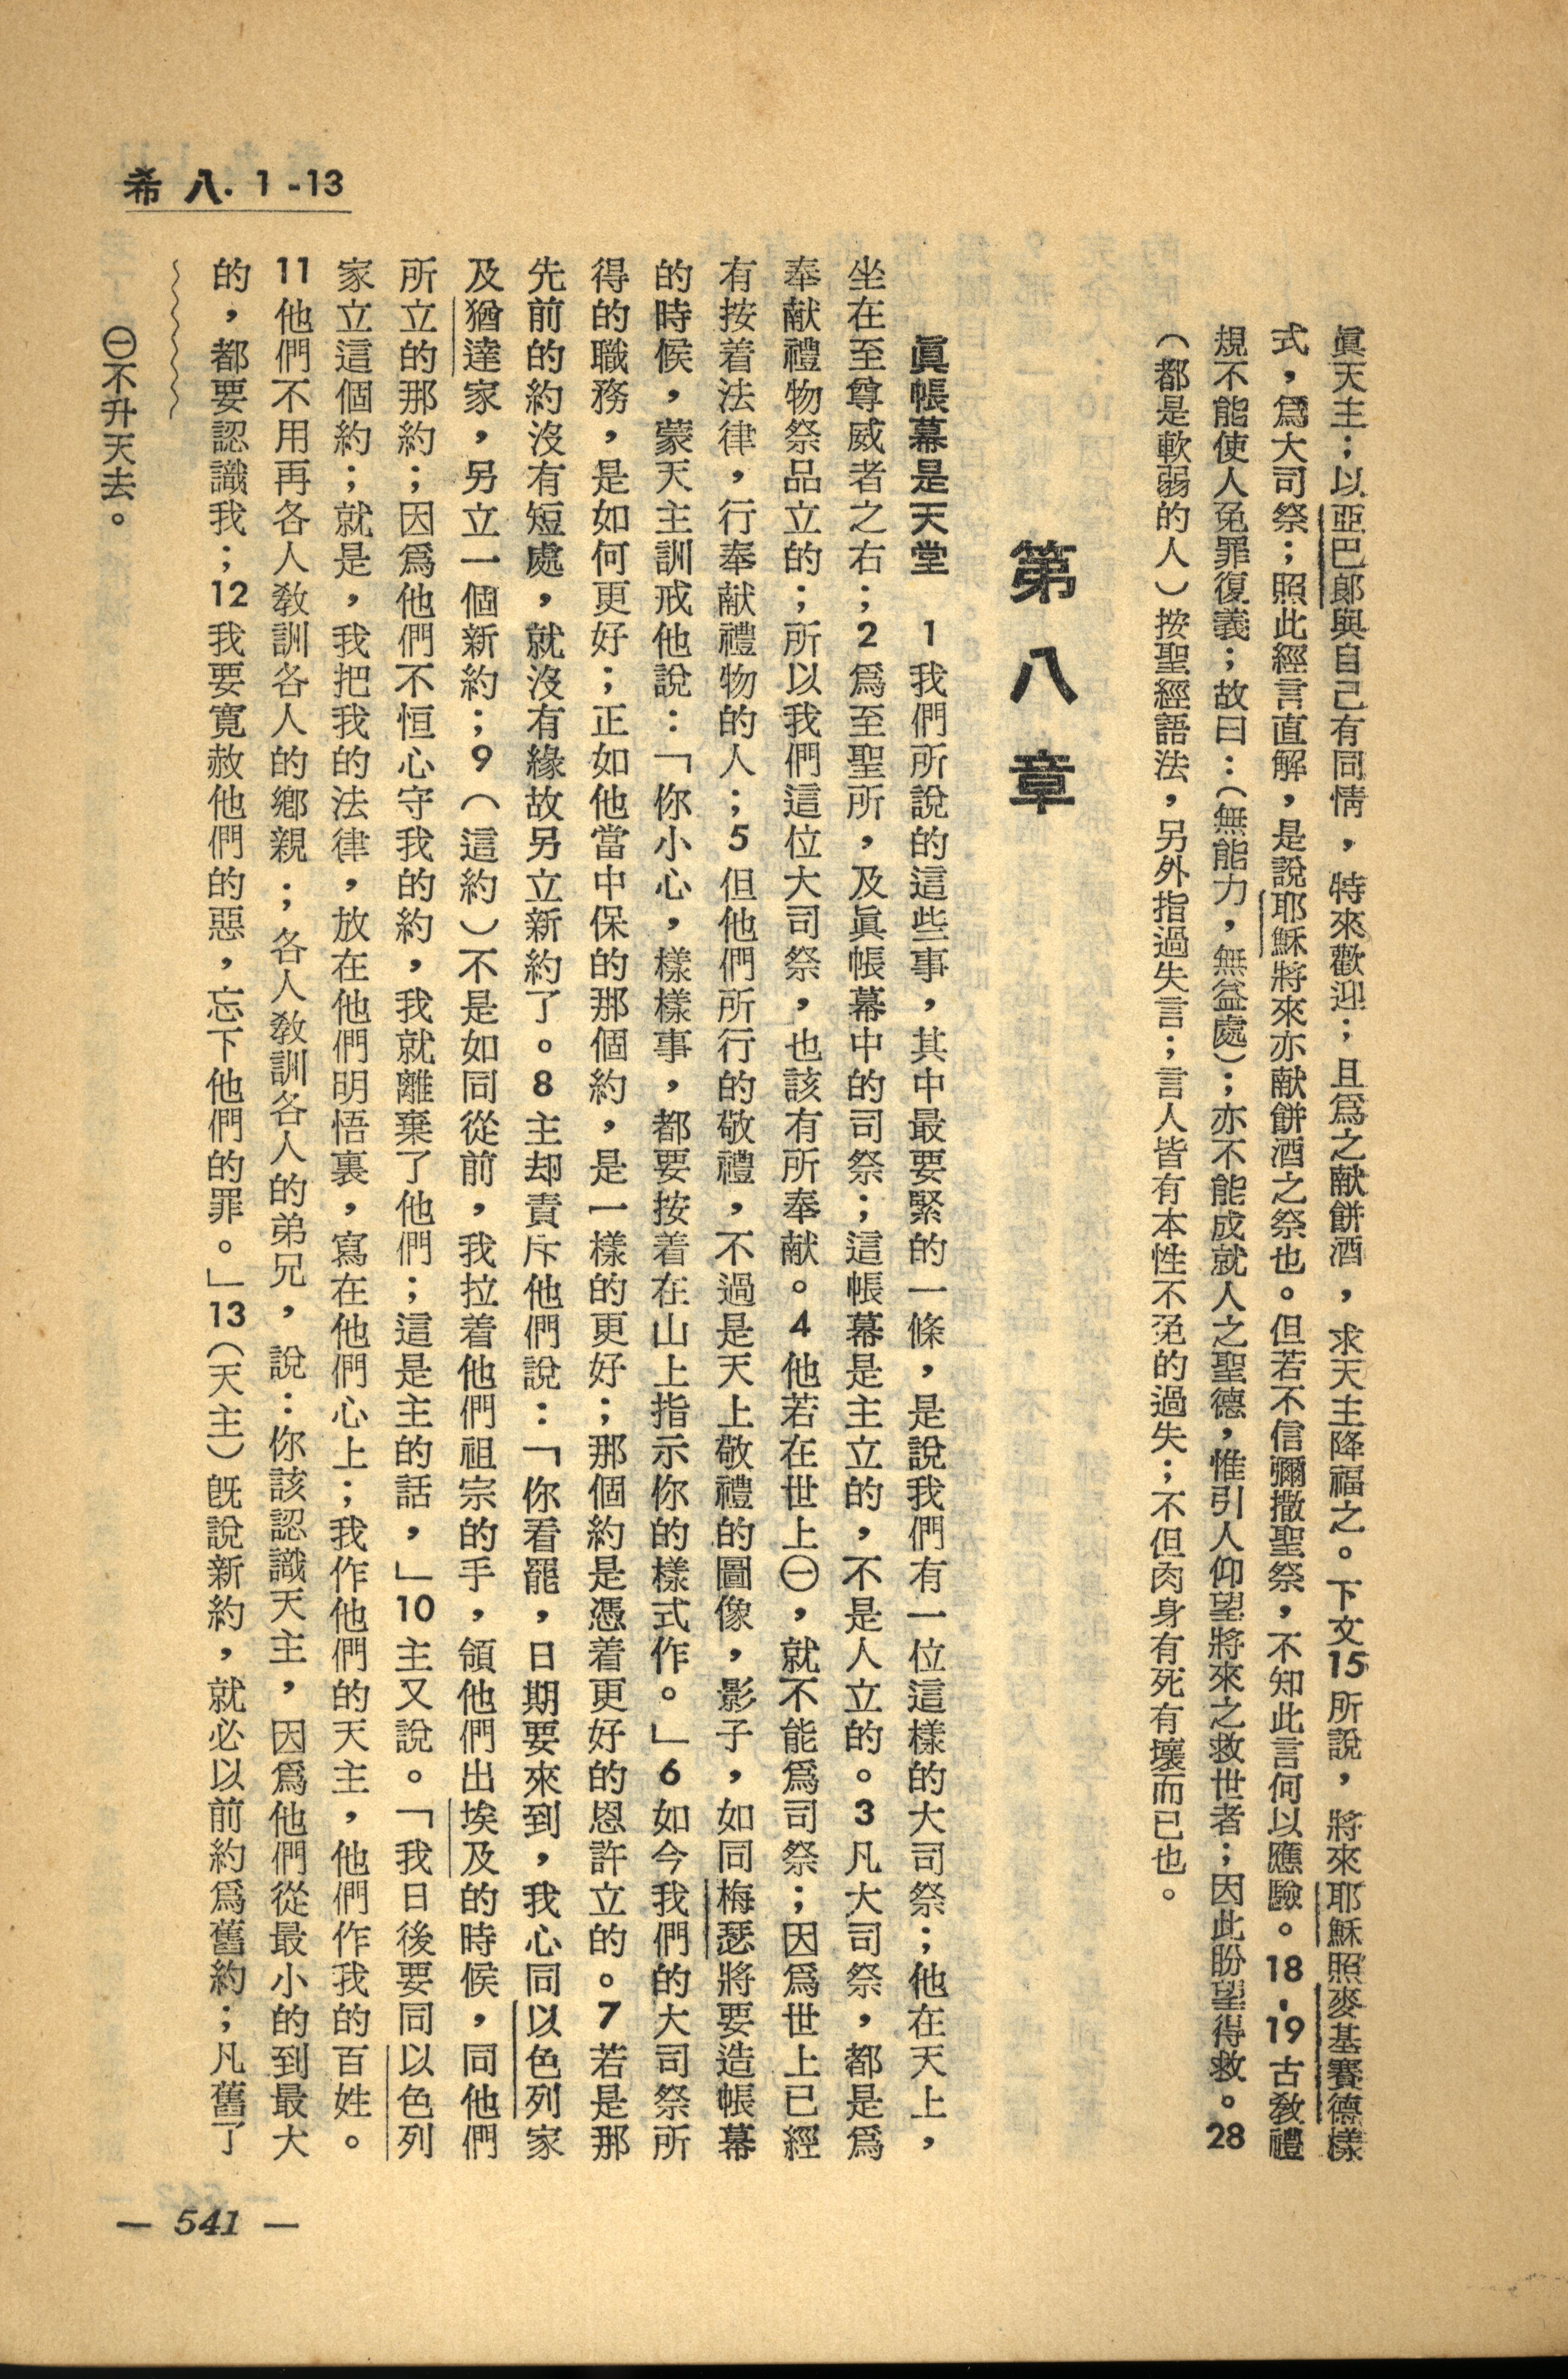 希 八. 1 -13
眞天主；以亞巴郞與自己有同情，特來歡迎；且爲之献餅酒，求天主降福之。下文15所說，將來耶穌照麥基賽德樣
式，爲大司祭；照此經言直解，是說耶穌將來亦献餅酒之祭也。但若不信彌撒聖祭，不知此言何以應驗。18.19古敎禮
規不能使人免罪復義；故曰：（無能力，無益處）；亦不能成就人之聖德，惟引人仰望將來之救世者；因此盼望得救。28
（都是軟弱的人）按聖經語法，另外指過失言；言人皆有本性不免的過失；不但肉身有死有壞而已也。
第八章
眞帳幕是天堂　1我們所說的這些事，其中最要緊的一條，是說我們有一位這樣的大司祭；他在天上，
坐在至尊威者之右；2爲至聖所，及眞帳幕中的司祭；這帳幕是主立的，不是人立的。3凡大司祭，都是爲
奉献禮物祭品立的；所以我們這位大司祭，也該有所奉献。4他若在世上㊀，就不能爲司祭；因爲世上已經
有按着法律，行奉献禮物的人；5但他們所行的敬禮，不過是天上敬禮的圖像，影子，如同梅瑟將要造帳幕
的時候，蒙天主訓戒他說：「你小心，樣樣事，都要按着在山上指示你的樣式作。」6如今我們的大司祭所
得的職務，是如何更好；正如他當中保的那個約，是一樣的更好；那個約是憑着更好的恩許立的。7若是那
先前的約沒有短處，就沒有緣故另立新約了。8主却責斥他們說：「你看罷，日期要來到，我心同以色列家
及猶達家，另立一個新約；9（這約）不是如同從前，我拉着他們祖宗的手，領他們出埃及的時候，同他們
所立的那約；因爲他們不恒心守我的約，我就離棄了他們；這是主的話，」10主又說。「我日後要同以色列
家立這個約；就是，我把我的法律，放在他們明悟裏，寫在他們心上；我作他們的天主，他們作我的百姓。
11他們不用再各人敎訓各人的鄉親；各人敎訓各人的弟兄，說：你該認識天主，因爲他們從最小的到最大
的，都要認識我；12我要寬赦他們的惡，忘下他們的罪。」13（天主）旣說新約，就必以前約爲舊約；凡舊了
㊀不升天去。
— 541 —